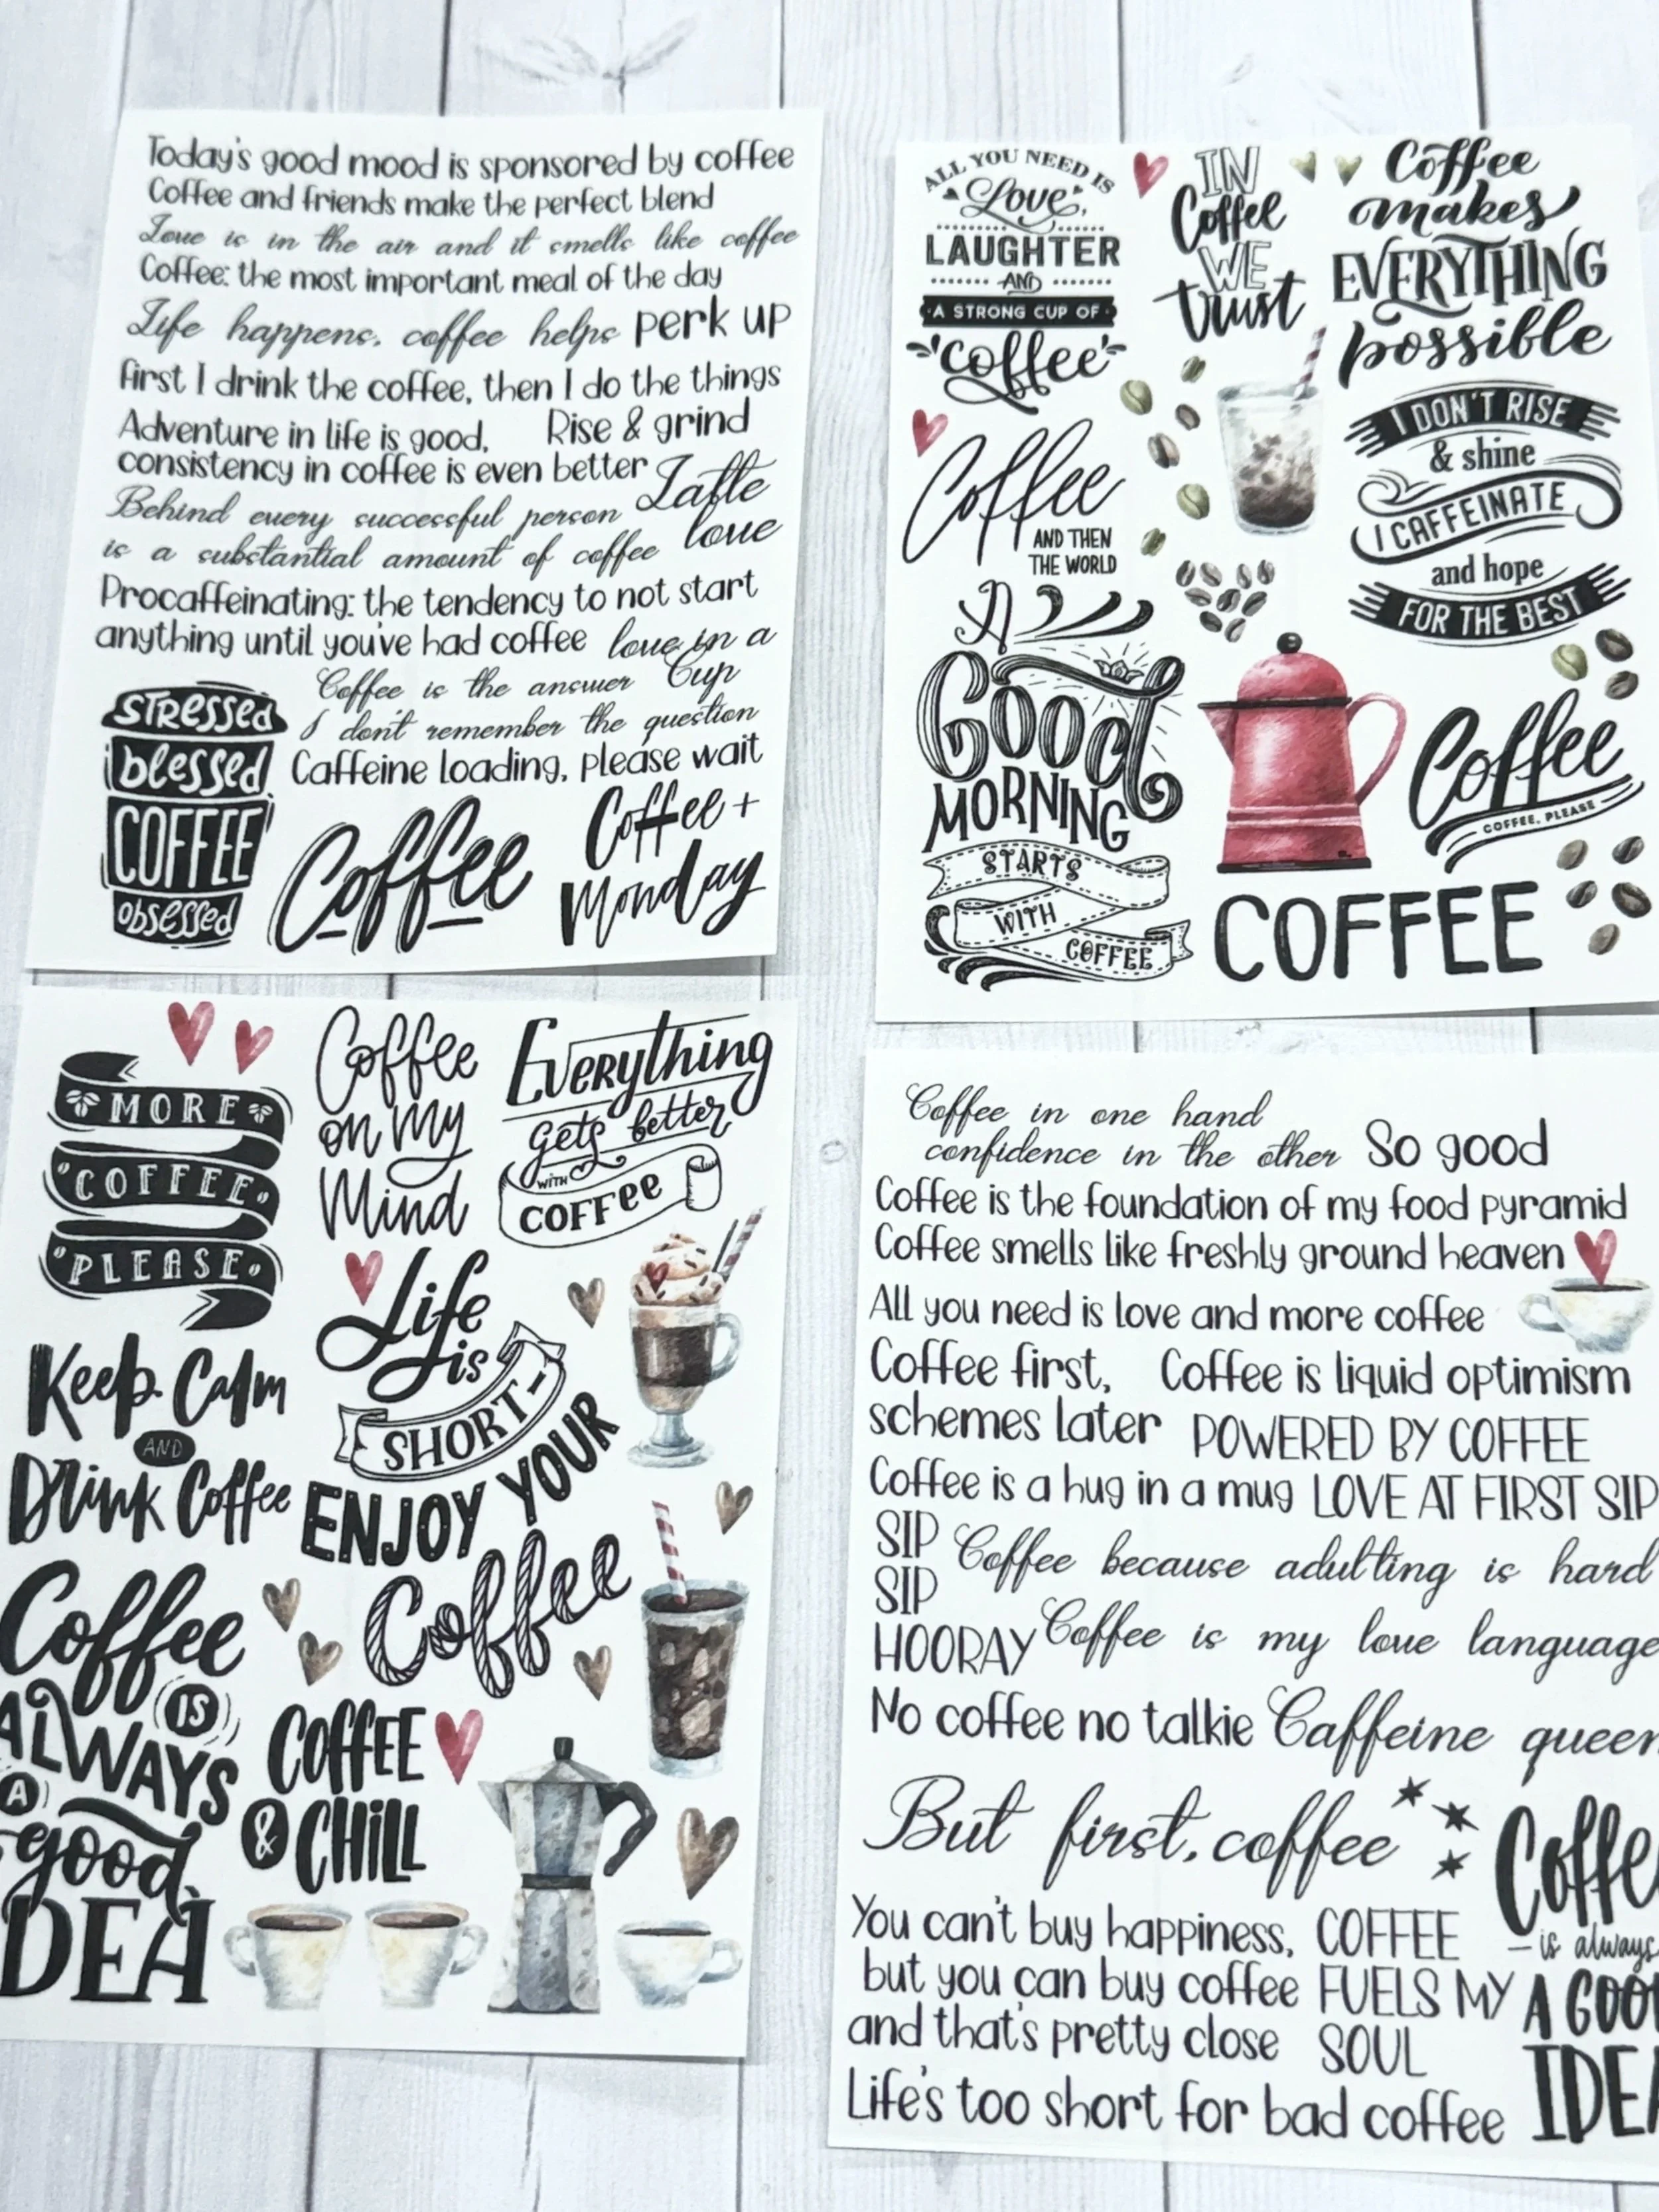 Today's good mood is sponsored by coffee
Coffee and friends make the perfect blend
Love is in the air and it smells like coffee
Coffee: the most important meal of the day
Life happens, coffee helps
perk up
first I drink the coffee, then I do the things
Adventure in life is good,
consistency in coffee is even better
Rise & grind
Latte
love
Behind every successful person
is a substantial amount of coffee
Procaffeinating: the tendency to not start
anything until you've had coffee
love in a
Cup
Coffee is the answer
I don't remember the question
Caffeine loading, please wait
STRESSED
blessed
COFFEE
obsessed
Coffee
Coffee +
Monday
ALL YOU NEED IS
Love,
LAUGHTER
AND
A STRONG CUP OF
coffee
IN
Coffee
WE
trust
Coffee
makes
EVERYTHING
possible
Coffee
AND THEN
THE WORLD
I DON'T RISE
& shine
I CAFFEINATE
and hope
FOR THE BEST
A
Good
MORNING
STARTS
WITH
COFFEE
Coffee
COFFEE, PLEASE
COFFEE
MORE
COFFEE
PLEASE
Coffee
on my
Mind
Everything
gets better
WITH
COFFee
Keep Calm
AND
Drink Coffee
Life
is
SHORT-
ENJOY YOUR
Coffee
Coffee
IS
ALWAYS
A
good
DEA
COFFEE
& CHiLL
Coffee in one hand
confidence in the other
So good
Coffee is the foundation of my food pyramid
Coffee smells like freshly ground heaven
All you need is love and more coffee
Coffee first,
schemes later
Coffee is liquid optimism
POWERED BY COFFEE
Coffee is a hug in a mug
LOVE AT FIRST SIP
SIP
SIP
HOORAY
Coffee because adulting is hard
Coffee is my love language
No coffee no talkie
Caffeine queen
But first, coffee
You can't buy happiness,
but you can buy coffee
and that's pretty close
COFFEE
FUELS MY
SOUL
Coffe
— is always
A GOO
IDE
Life's too short for bad coffee